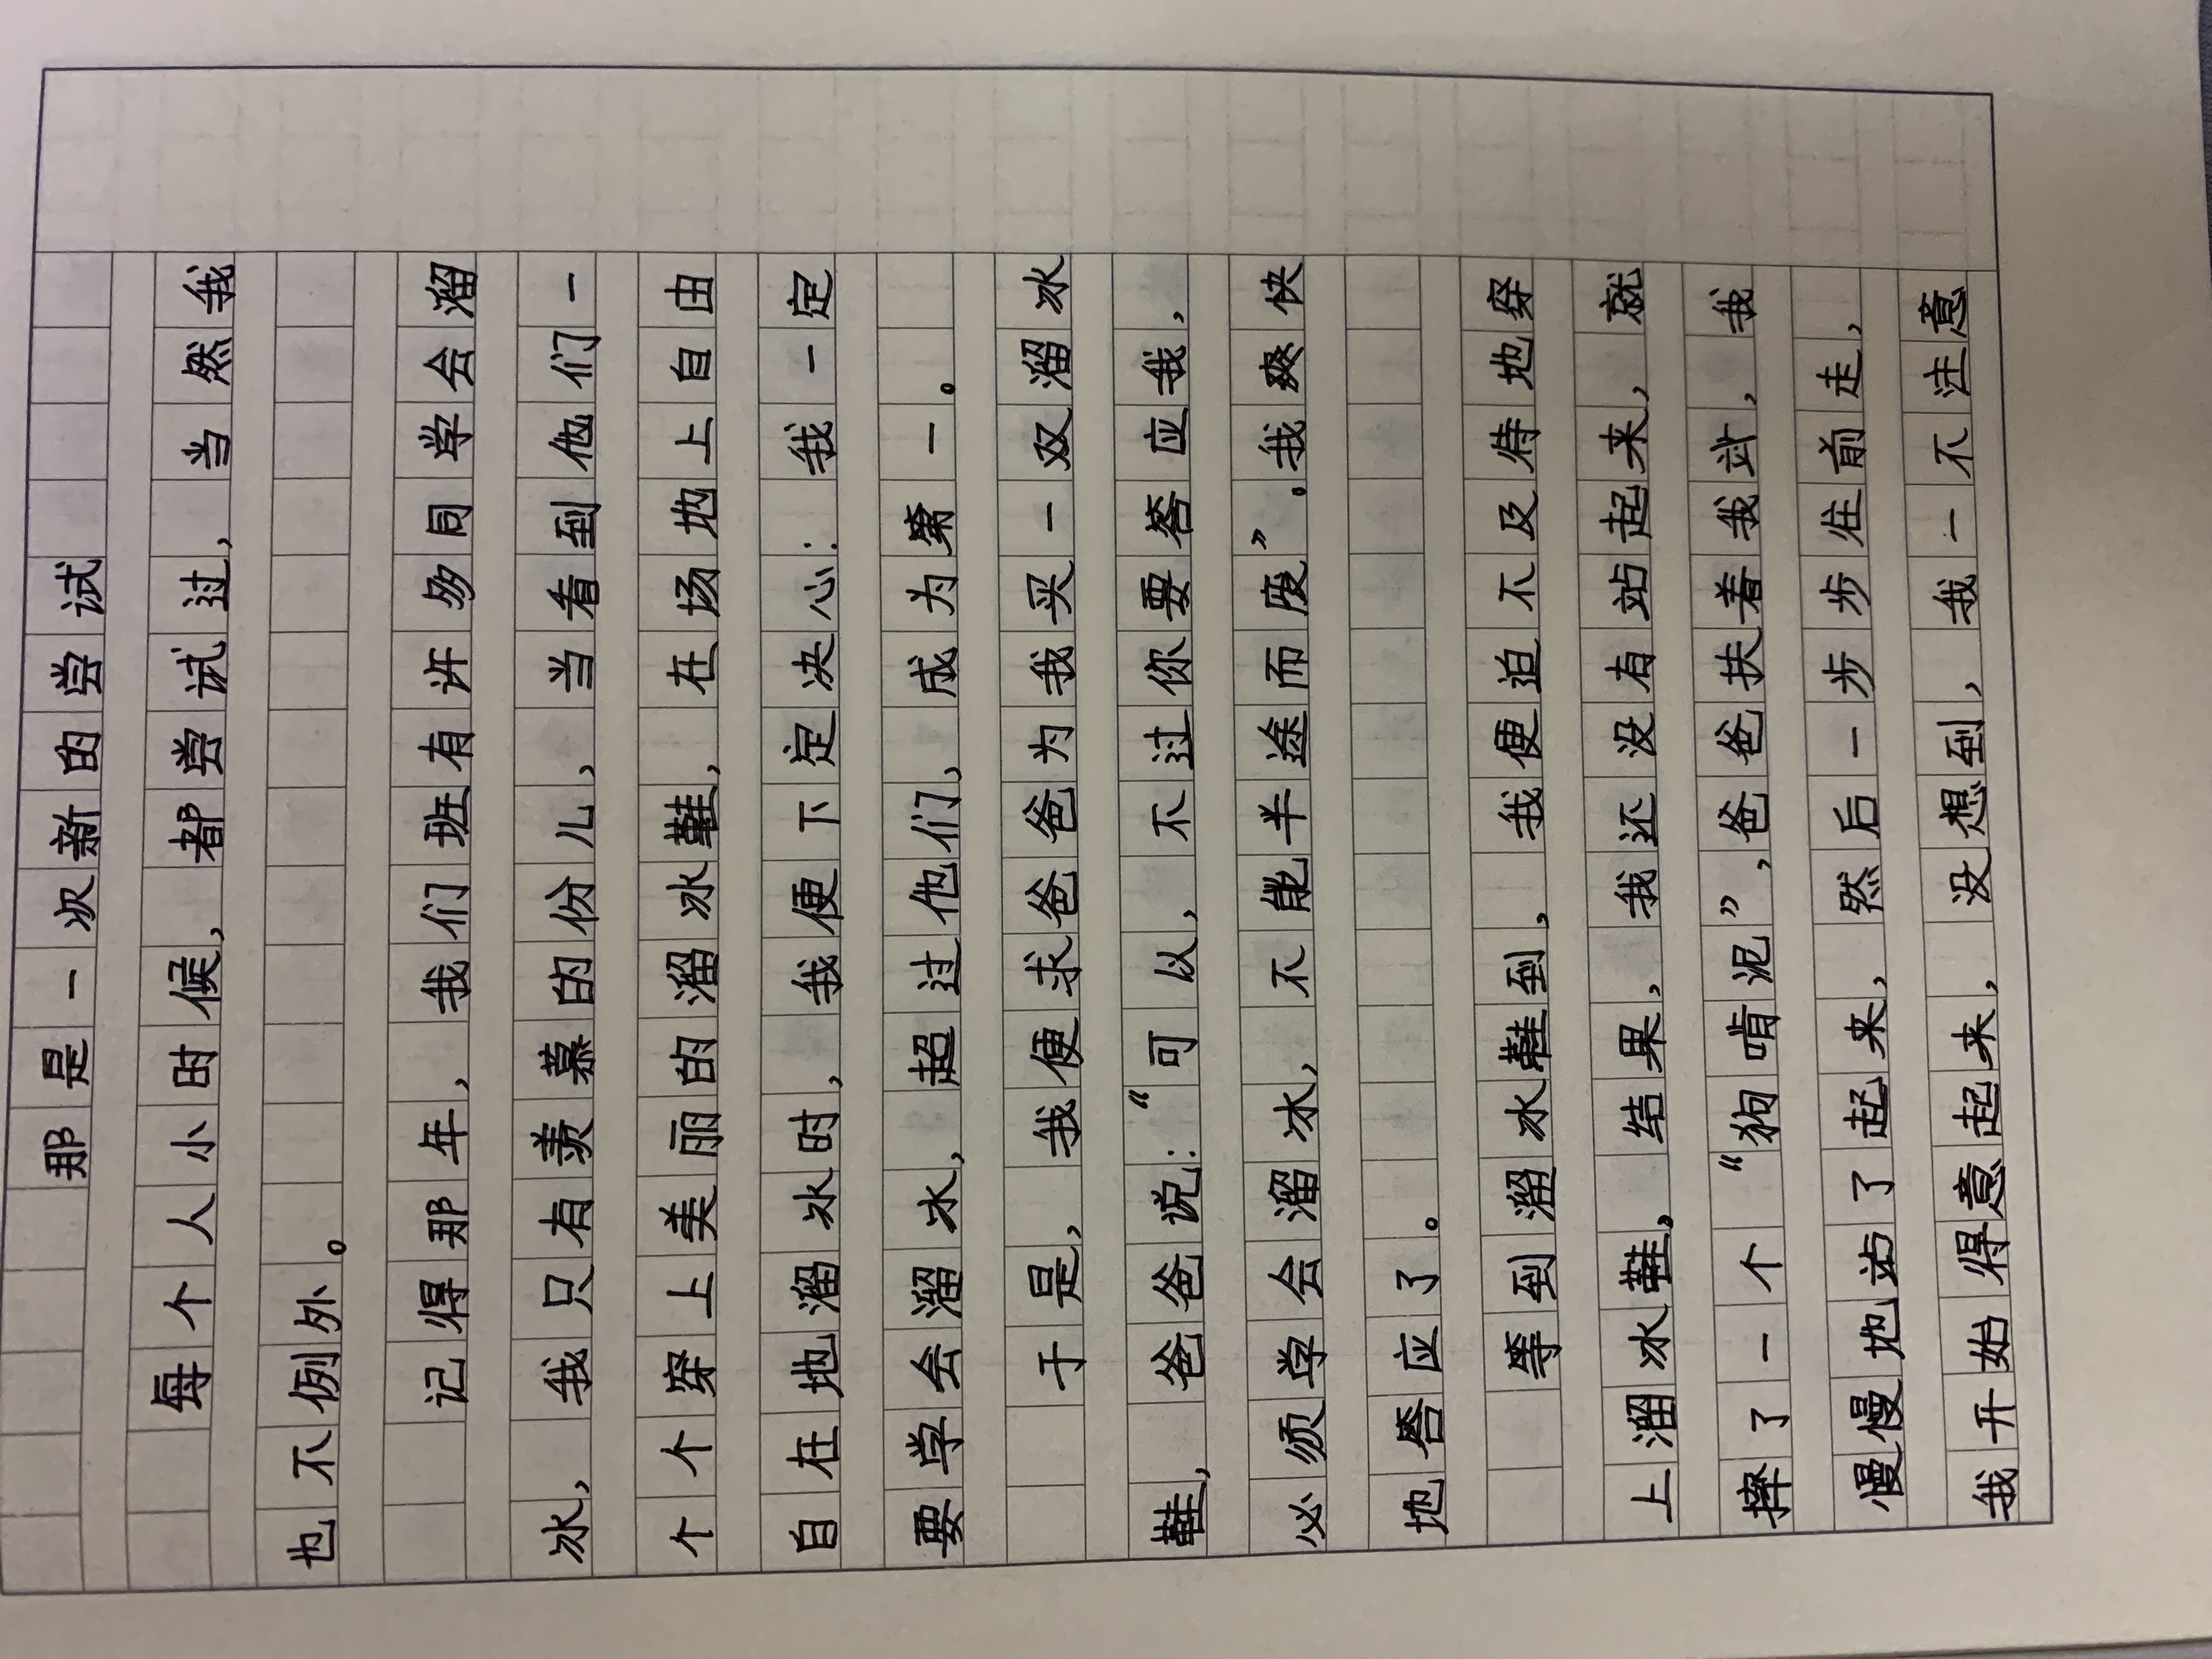 那是一次新的尝试
每个人小时候，都尝试过，当然我
也不例外。
记得那年，我们班有许多同学会溜
冰，我只有羡慕的份儿，当看到他们一
个个穿上美丽的溜冰鞋，在场地上自由
自在地溜冰时，我便下定决心：我一定
要学会溜冰，超过他们，成为第一。
于是，我便求爸爸为我买一双溜冰
鞋，爸爸说：“可以，不过你要答应我，
必须学会溜冰，不能半途而废”。我爽快
地答应了。
等到溜冰鞋到，我便迫不及待地穿
上溜冰鞋，结果，我还没有站起来，就
摔了一个“狗啃泥”，爸爸扶着我站，我
慢慢地站了起来，然后一步步往前走，
我开始得意起来，没想到，我一不注意